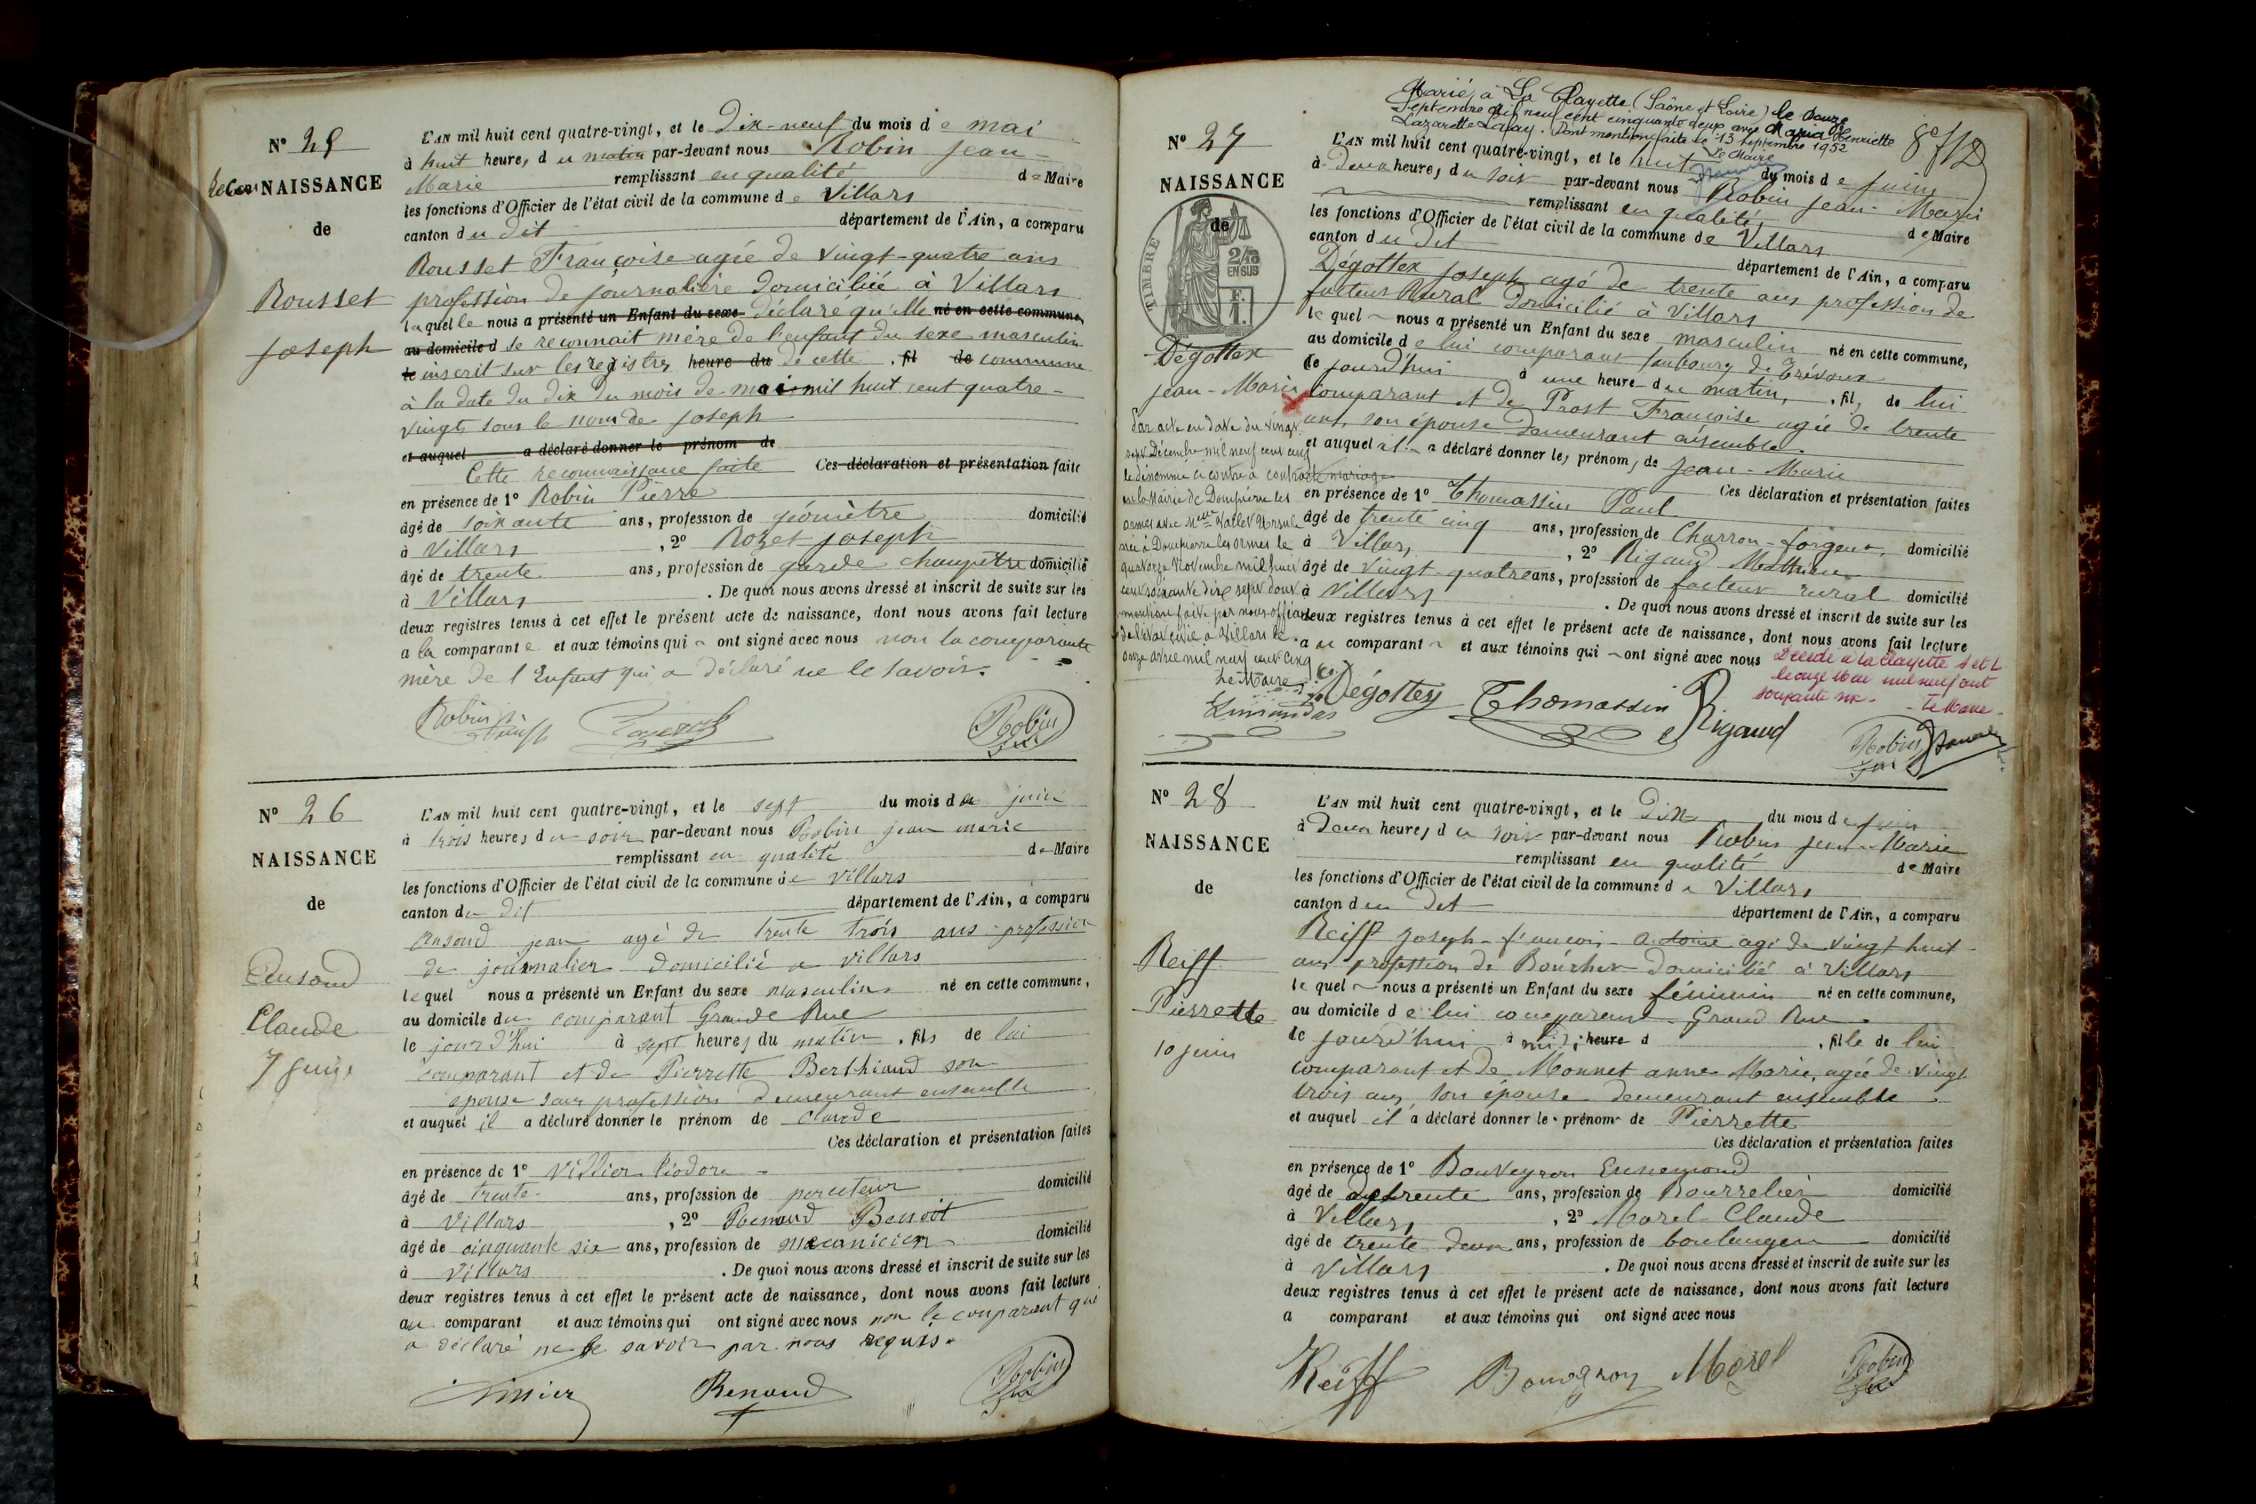 N° 25
Recon NAISSANCE
de
Rousset
Joseph
L'AN mil huit cent quatre-vingt, et le Dix-neuf du mois de mai
à huit heures du matin par-devant nous Robin Jean-
Marie remplissant en qualité de Maire
les fonctions d'Officier de l'état civil de la commune de Villars
canton du dit département de l'Ain, a comparu
Rousset Françoise agée de vingt-quatre ans
profession de journalière domiciliée à Villars
laquelle nous a présenté un Enfant du sexe déclaré qu'elle né en cette commune,
au domicile d se reconnait mère de l'enfant du sexe masculin
le inscrit sur les registres heure du de cette . fil de commune
à la date du dix du mois de mai mil huit cent quatre-
vingts sous le nom de Joseph
et auquel a déclaré donner le prénom de
Cette reconnaissance faite Ces déclaration et présentation faite
en présence de 1° Robin Pierre
âgé de soixante ans, profession de géomètre domicilié
à Villars , 2° Rozet Joseph
âgé de trente ans, profession de garde champêtre domicilié
à Villars . De quoi nous avons dressé et inscrit de suite sur les
deux registres tenus à cet effet le présent acte de naissance, dont nous avons fait lecture
a la comparante et aux témoins qui ont signé avec nous non la comparante
mère de l'Enfant qui a déclaré ne le savoir.
Robin
Robin
N° 26
NAISSANCE
de
Claude
7 juin
L'AN mil huit cent quatre-vingt, et le sept du mois de juin
à trois heures du soir par-devant nous Robin jean marie
remplissant en qualité de Maire
les fonctions d'Officier de l'état civil de la commune de Villars
canton du dit département de l'Ain, a comparu
jean agé de trente trois ans profession
de journalier domicilié a villars
lequel nous a présenté un Enfant du sexe masculin né en cette commune,
au domicile du comparant Grande Rue
le jourd'hui à sept heures du matin . fils de lui
comparant et de Pierrette Berthiaud son
epouse sans profession demeurant ensemble
et auquel il a déclaré donner le prénom de claude
Ces déclaration et présentation faites
en présence de 1°
âgé de trente ans, profession de domicilié
à Villars , 2° Renaud Benoit
âgé de cinquante six ans, profession de mecanicien domicilié
à Villars . De quoi nous avons dressé et inscrit de suite sur les
deux registres tenus à cet effet le présent acte de naissance, dont nous avons fait lecture
au comparant et aux témoins qui ont signé avec nous non le comparant qui
a déclaré ne le savoir par nous requis.
Renaud
Robin
Marié à La Clayette (Saône et Loire) le douze
Septembre mil neuf cent cinquante deux avec Maria Henriette
Lazarette Lavay. Dont mention faite le 13 septembre 1952
Le Maire
N° 27
NAISSANCE
de
TIMBRE
2/10
EN SUS
F.
1.
Dégottex
Jean-Marie
Par acte en date du vingt
sept Décembre mil neuf cent cinq
le dénommé ci contre a contracté mariage
en la Mairie de Dompierre les
ormes avec Ursule
née à Dompierre les ormes le
quatorze Novembre mil huit
cent soixante dix sept dont
mention faite par nous officier
de l'état civil à Villars le
onze avril mil neuf cent cinq
Le Maire
L'AN mil huit cent quatre-vingt, et le huit du mois de juin
à deux heures du soir par-devant nous Robin Jean-Marie
remplissant en qualité de Maire
les fonctions d'Officier de l'état civil de la commune de Villars
canton du dit département de l'Ain, a comparu
Dégottex Joseph agé de trente ans profession de
facteur Rural domicilié à Villars
lequel nous a présenté un Enfant du sexe masculin né en cette commune,
au domicile de lui comparant faubourg de Trévoux
le jourd'hui à une heure du matin, . fils de lui
comparant et de Prost Françoise agée de trente
ans, son épouse demeurant ensemble
et auquel il a déclaré donner les prénoms de Jean-Marie
Ces déclaration et présentation faites
en présence de 1° Thomassin Paul
âgé de trente cinq ans, profession de Charron-forgeur, domicilié
à Villars , 2° Rigaud Mathieu
âgé de vingt-quatre ans, profession de facteur rural domicilié
à Villars . De quoi nous avons dressé et inscrit de suite sur les
deux registres tenus à cet effet le présent acte de naissance, dont nous avons fait lecture
au comparant et aux témoins qui ont signé avec nous
Décédé à La Clayette S et L
le onze Mai mil neuf cent
soixante six. Le Maire
Dégottex Thomassin Rigaud
Robin
N° 28
NAISSANCE
de
Reiff
Pierrette
10 juin
L'AN mil huit cent quatre-vingt, et le Dix du mois de juin
à Deux heures du soir par-devant nous Robin Jean-Marie
remplissant en qualité de Maire
les fonctions d'Officier de l'état civil de la commune de Villars
canton du dit département de l'Ain, a comparu
Reiff Joseph-françois-Antoine agé de vingt huit
ans profession de Boucher domicilié à Villars
lequel nous a présenté un Enfant du sexe féminin né en cette commune,
au domicile de lui comparant Grand Rue
le jourd'hui à midi heure d . fille de lui
comparant et de Monnet anne Marie, agée de vingt
trois ans, son épouse demeurant ensemble
et auquel il a déclaré donner le prénom de Pierrette
Ces déclaration et présentation faites
en présence de 1° Bouveyron Ennemond
âgé de trente ans, profession de Bourrelier domicilié
à Villars , 2° Morel Claude
âgé de trente deux ans, profession de boulanger domicilié
à Villars . De quoi nous avons dressé et inscrit de suite sur les
deux registres tenus à cet effet le présent acte de naissance, dont nous avons fait lecture
a comparant et aux témoins qui ont signé avec nous
Reiff Morel
Robin